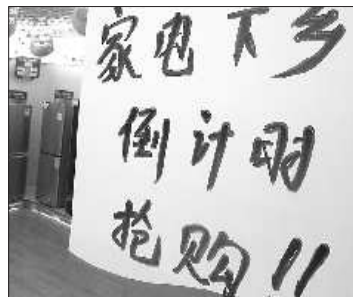 家电下乡
倒计时
抢购!!